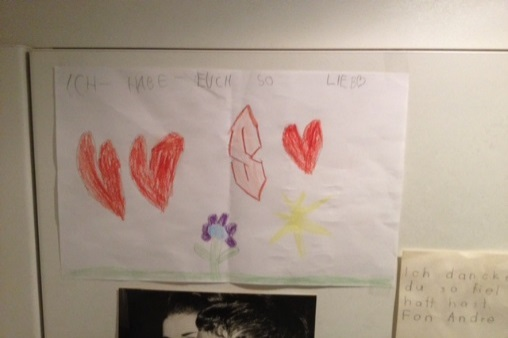 ICH HABE EUCH SO LIEB
Ich dancke
du so fiel
hatt hast
Fon Andre